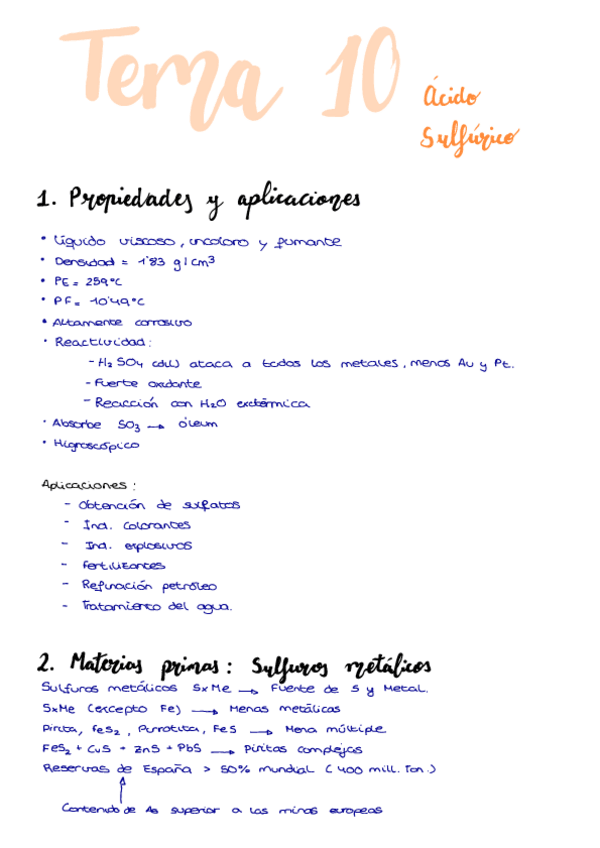 Tema 10
Ácido
Sulfúrico
1. Propiedades y aplicaciones
• Líquido viscoso, incoloro y fumante
• Densidad = 1'83 g/cm³
• PE = 259°C
• PF = 10'49°C
• Altamente corrosivo
• Reactividad:
- H₂SO₄ (dil) ataca a todos los metales, menos Au y Pt.
- Fuerte oxidante
- Reacción con H₂O exotérmica
• Absorbe SO₃ → óleum
• Higroscópico
Aplicaciones:
- Obtención de sulfatos
- Ind. colorantes
- Ind. explosivos
- Fertilizantes
- Refinación petróleo
- Tratamiento del agua.
2. Materias primas: Sulfuros metálicos
Sulfuros metálicos SxMe → Fuente de S y Metal.
SxMe (excepto Fe) → Menas metálicas
Pirita, FeS₂, Pirrotita, FeS → Mena múltiple
FeS₂ + CuS + ZnS + PbS → Piritas complejas
Reservas de España > 50% mundial (400 mill. Ton.)
Contenido de As superior a las minas europeas